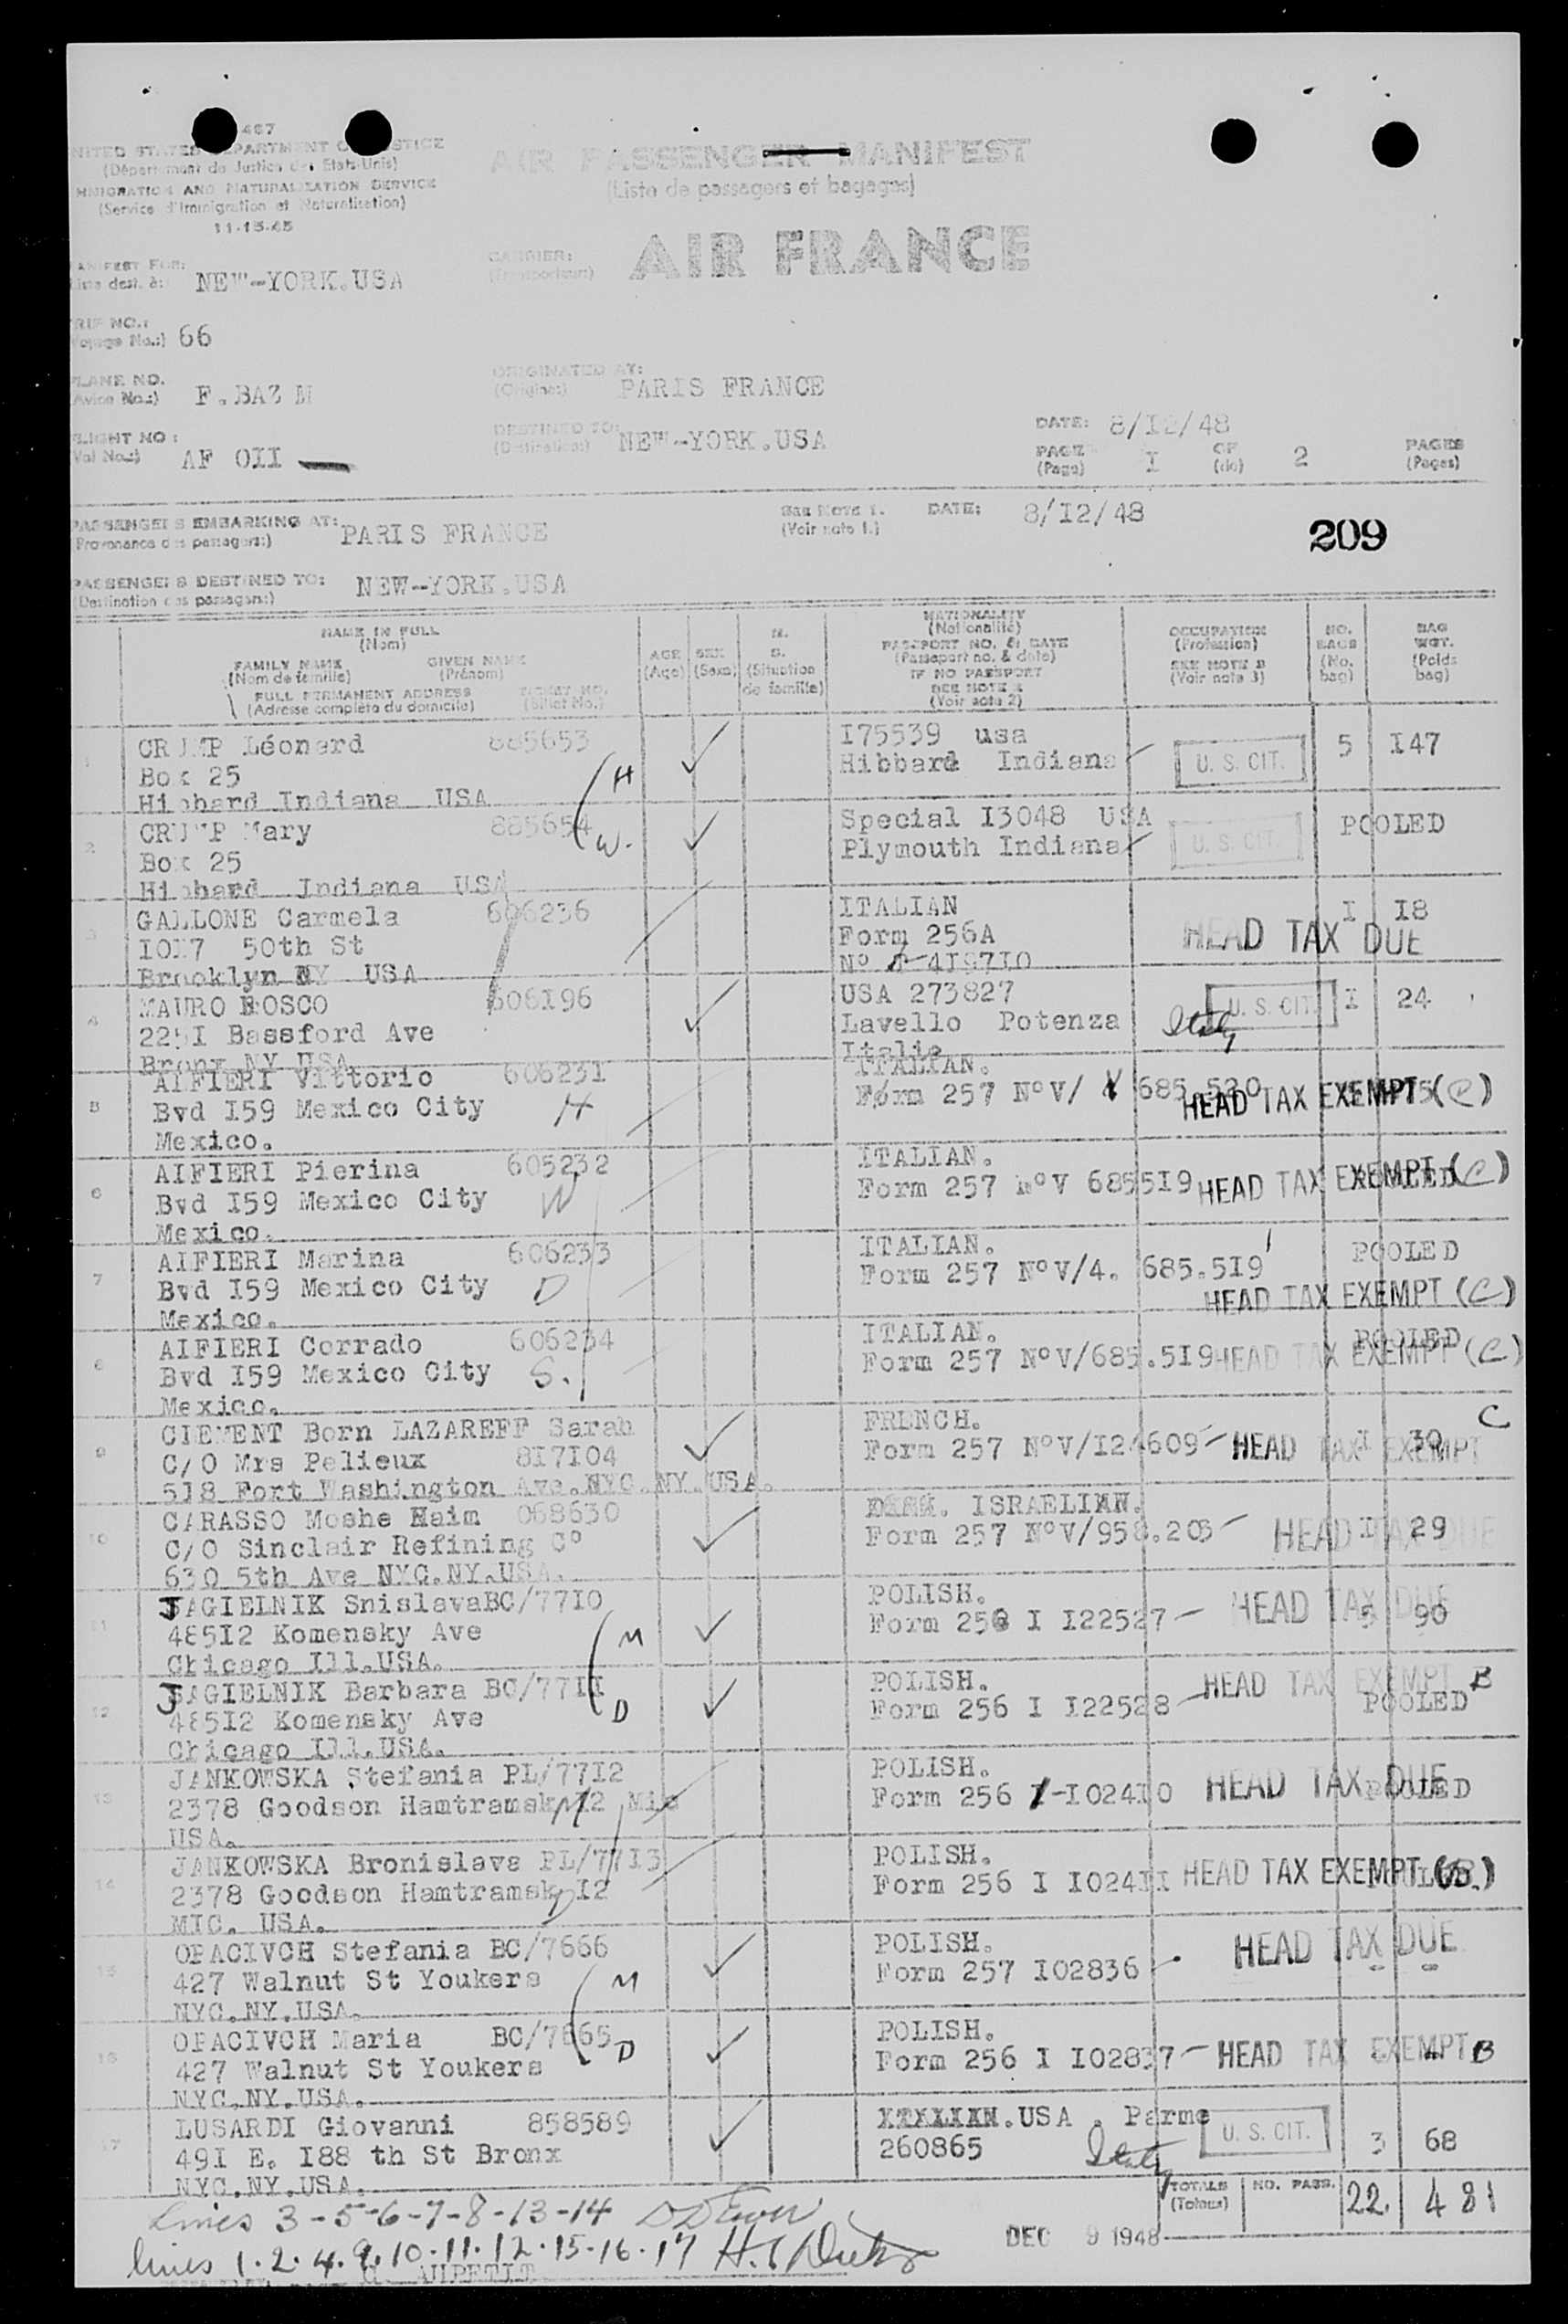 467
UNITED STATES DEPARTMENT OF JUSTICE
(Département de Justice des Etats-Unis)
IMMIGRATION AND NATURALIZATION SERVICE
(Service d'Immigration et Naturalisation)
11-15-45
AIR PASSENGER MANIFEST
(Liste de passagers et bagages)
CARRIER:
(Transporteur)
AIR FRANCE
MANIFEST FOR:
Liste dest. à:
NEW-YORK.USA
TRIP NO.:
Voyage No.:)
66
PLANE NO.
(Avion No.:)
F.BAZ M
ORIGINATED AT:
(Origine:)
PARIS FRANCE
FLIGHT NO:
(Vol No.:)
AF OII
DESTINED TO:
(Destination:)
NEW-YORK.USA
DATE: 8/I2/48
PAGE I OF 2 PAGES
(Page) (de) (Pages)
PASSENGERS EMBARKING AT: PARIS FRANCE
(Provenance des passagers:)
SEE NOTE 1.
(Voir note 1.)
DATE: 8/I2/48
209
PASSENGERS DESTINED TO: NEW-YORK.USA
(Destination des passagers:)
NAME IN FULL
(Nom)
FAMILY NAME GIVEN NAME
(Nom de famille) (Prénom)
FULL PERMANENT ADDRESS TICKET NO.
(Adresse complète du domicile) (Billet No.)
AGE
(Age)
SEX
(Sexe)
M.
S.
(Situation
de famille)
NATIONALITY
(Nationalité)
PASSPORT NO. & DATE
(Passeport no. & date)
IF NO PASSPORT
SEE NOTE 2
(Voir note 2)
OCCUPATION
(Profession)
SEE NOTE 3
(Voir note 3)
NO.
BAGS
(No.
bag)
BAG
WGT.
(Poids
bag)
1 CRUMP Léonard 885653 I75539 usa 5 I47
Box 25 H Hibbard Indiana U. S. CIT.
Hibbard Indiana USA
2 CRUMP Mary 885654 Special I3048 USA POOLED
Box 25 W. Plymouth Indiana U. S. CIT.
Hibbard Indiana USA
3 GALLONE Carmela 606236 ITALIAN I I8
IOI7 50th St Form 256A HEAD TAX DUE
Brooklyn NY USA Nº 419710
4 MAURO BOSCO 606I96 USA 273827 U. S. CIT. I 24
225I Bassford Ave Lavello Potenza Italy
Bronx NY USA Italie
5 AIFIERI Vittorio 606231 ITALIAN.
Bvd I59 Mexico City H Form 257 NºV/ 685.520 HEAD TAX EXEMPT (C)
Mexico.
6 AIFIERI Pierina 605232 ITALIAN.
Bvd I59 Mexico City W Form 257 NºV 685519 HEAD TAX EXEMPT (C)
Mexico.
7 AIFIERI Marina 606233 ITALIAN. POOLED
Bvd I59 Mexico City D Form 257 NºV/4. 685.5I9
Mexico. HEAD TAX EXEMPT (C)
8 AIFIERI Corrado 606234 ITALIAN. POOLED
Bvd I59 Mexico City S. Form 257 NºV/685.5I9 HEAD TAX EXEMPT (C)
Mexico.
9 CIEMENT Born LAZAREFF Sarah FRENCH. C
C/O Mrs Pelieux 8I7I04 Form 257 NºV/I24609 HEAD TAX EXEMPT I 30
5I8 Fort Washington Ave.NYC.NY.USA.
10 CARASSO Moshe Haim 068630 ISRAELIAN.
C/O Sinclair Refining Cº Form 257 NºV/958.203 HEAD TAX DUE I 29
630 5th Ave NYC.NY.USA.
11 JAGIELNIK SnislavaBC/77I0 POLISH.
485I2 Komensky Ave M Form 256 I I22527 HEAD TAX DUE 5 90
Chicago Ill.USA.
12 JAGIELNIK Barbara BC/77II POLISH. HEAD TAX EXEMPT B
485I2 Komensky Ave D Form 256 I I22528 POOLED
Chicago Ill.USA.
13 JANKOWSKA Stefania PL/77I2 POLISH.
2378 Goodson Hamtramsk I2 Mic M Form 256 I-I024I0 HEAD TAX DUE POOLED
USA.
14 JANKOWSKA Bronislava PL/77I3 POLISH.
2378 Goodson Hamtramsk I2 D Form 256 I I024II HEAD TAX EXEMPT (B.)
MIC. USA.
15 OPACIVCH Stefania BC/7666 POLISH.
427 Walnut St Youkers M Form 257 I02836 HEAD TAX DUE
NYC.NY.USA.
16 OPACIVCH Maria BC/7665 POLISH.
427 Walnut St Youkers D Form 256 I I02837 HEAD TAX EXEMPT B
NYC.NY.USA.
17 LUSARDI Giovanni 858589 ITALIAN.USA . Parme U. S. CIT.
49I E. I88 th St Bronx 260865 Italy 3 68
NYC.NY.USA.
TOTALS NO. PASS. 22. 481
(Totaux)
Lines 3-5-6-7-8-13-14
DEC 9 1948
lines 1.2.4.9.10.11.12.15.16.17